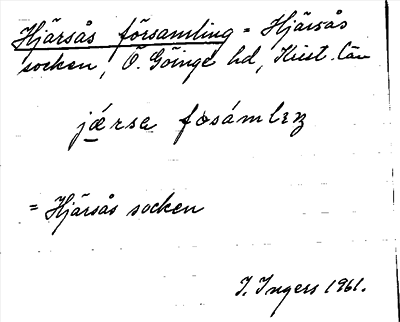 Hjärsås församling = Hjärsås
socken, Ö. Göinge hd, Krist. län
jǽrsa fosámlıŋ
= Hjärsås socken
I. Ingers 1961.